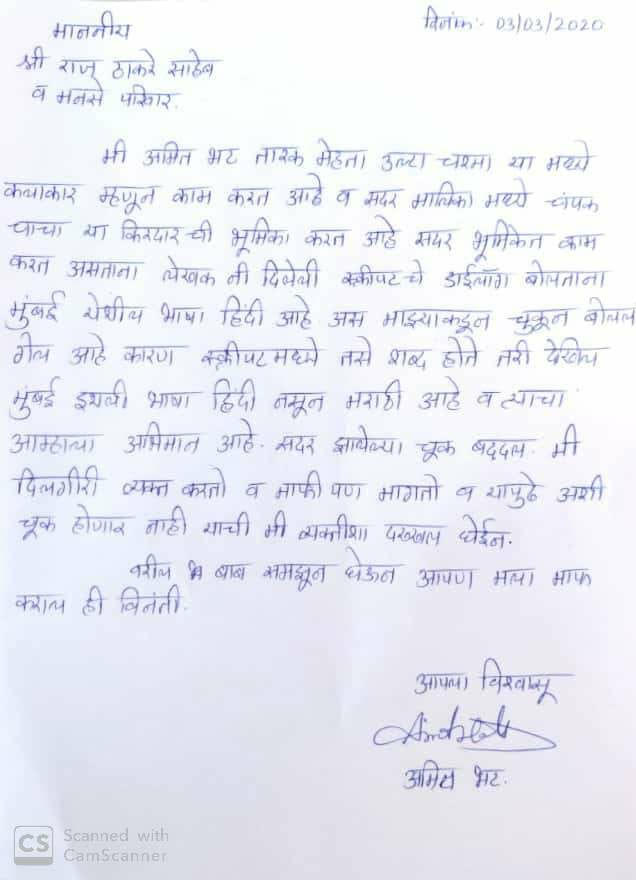 माननीय
दिनांक:- 03/03/2020
श्री राज ठाकरे साहेब
व मनसे परिवार.
मी अमित भट तारक मेहता उल्टा चश्मा या मध्ये
कलाकार म्हणून काम करत आहे व सदर मालिका मध्ये चंपक
चाचा या किरदार ची भूमिका करत आहे सदर भूमिकेत काम
करत असताना लेखक नी दिलेली स्क्रीपट चे डाईलॉग बोलताना
मुंबई येथील भाषा हिंदी आहे अस माझ्याकडून चुकून बोलल
गेल आहे कारण स्क्रीपट मध्ये तसे शब्द होते तरी देखिल
मुंबई इथली भाषा हिंदी नसून मराठी आहे व त्याचा
आम्हाला अभिमान आहे. सदर झालेल्या चूक बद्दल. मी
दिलगीरी व्यक्त करतो व माफी पण मागतो व यापुढे अशी
चूक होणार नाही याची मी व्यक्तीशा दख्खल घेईन.
वरील बाब समझून घेऊन आपण मला माफ
कराल ही विनंती.
आपला विश्वासू
अमित भट.
CS Scanned with
CamScanner